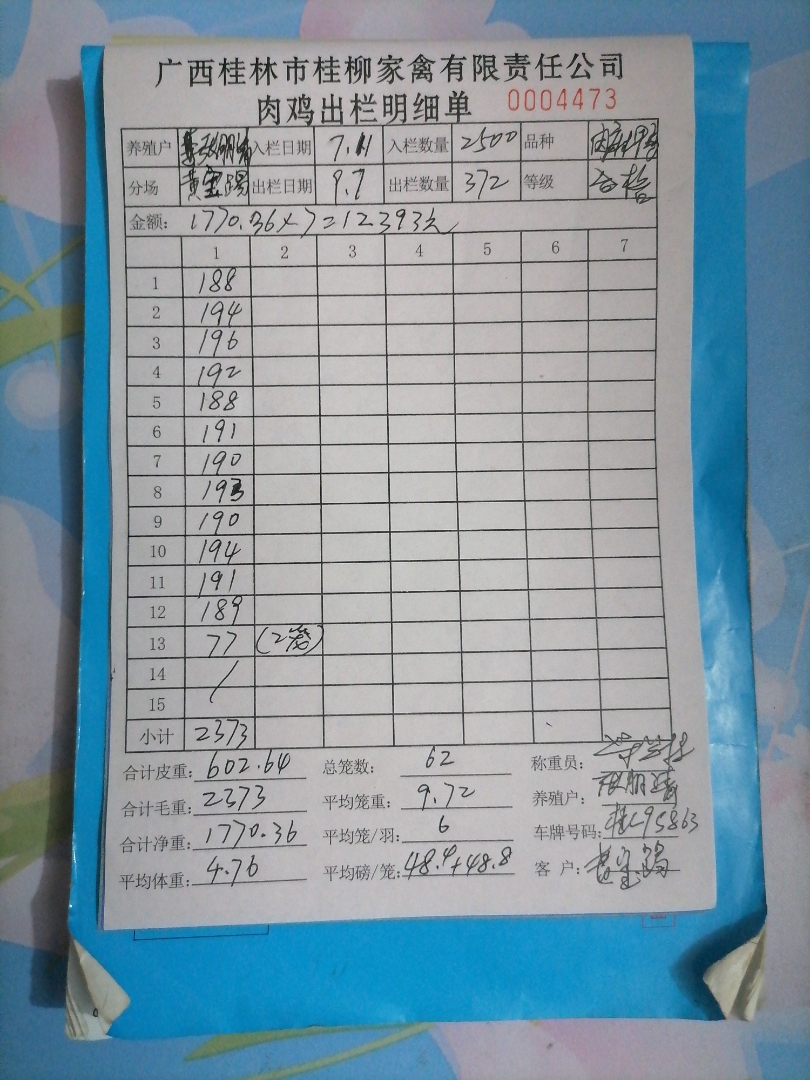 广西桂林市桂柳家禽有限责任公司
肉鸡出栏明细单 0004473
养殖户 入栏日期 7.11 入栏数量 2500 品种
分场 出栏日期 9.7 出栏数量 372 等级 合格
金额: 1770.36×7=12393元
1 2 3 4 5 6 7
1 188
2 194
3 196
4 192
5 188
6 191
7 190
8 193
9 190
10 194
11 191
12 189
13 77 (2笼)
14 /
15
小计 2373
合计皮重: 602.64 总笼数: 62 称重员:
合计毛重: 2373 平均笼重: 9.72 养殖户:
合计净重: 1770.36 平均笼/羽: 6 车牌号码: 桂L95863
平均体重: 4.76 平均磅/笼: 48.9+48.8 客户: